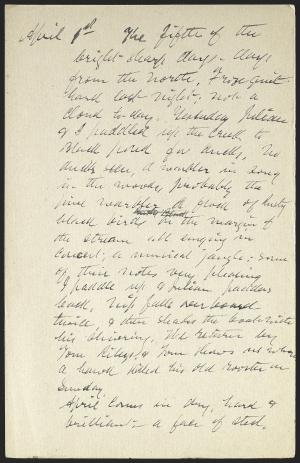 April 1st The fifth of the
bright sharp days - days
from the North, Froze quite
hard last night, not a
cloud to-day. Yesterday Julian
& I paddled up the Creek to
Black pond for ducks. No
ducks seen, A warbler in song
in the woods, probably the
pine warbler. A flock of rusty
black birds on the margin of
the stream all singing in
concert; a musical jangle; some
of their notes very pleasing
I paddle up & Julian paddles
back. Nip falls overboard
twice, & then shakes the boat with
his shivering. We return by
Tom Riley's & Tom shows us where
a hawk killed his old rooster on
Sunday.
April comes in dry, hard &
brilliant - a face of steel.